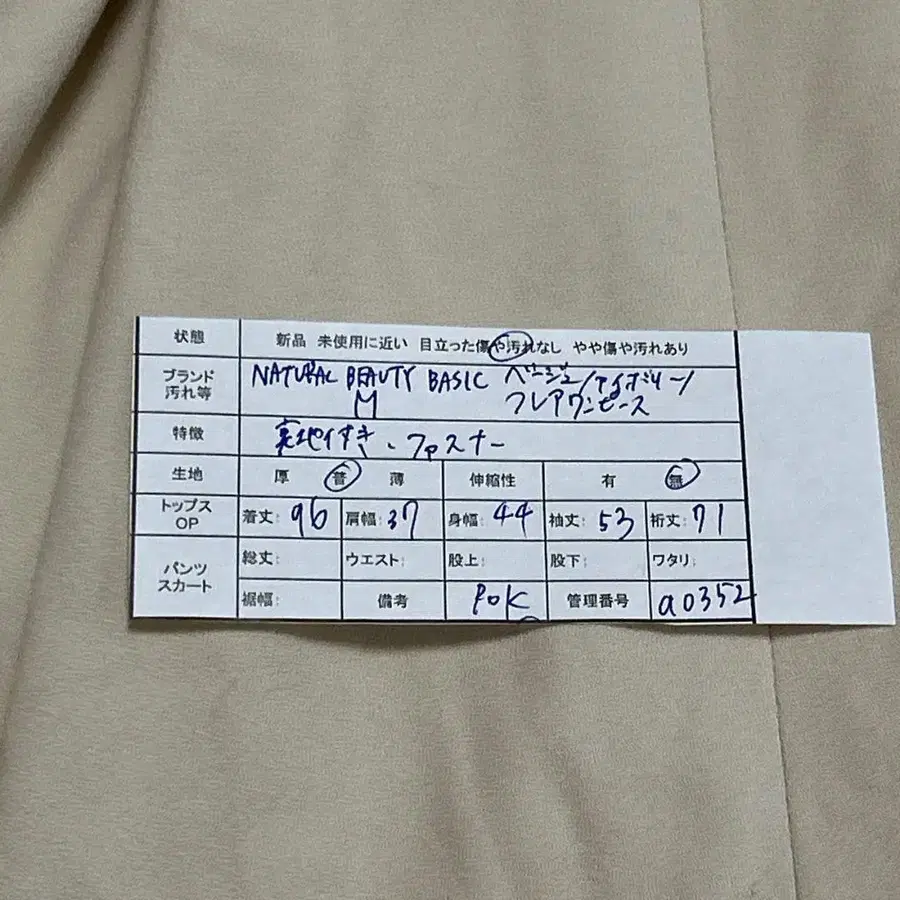 状態 新品 未使用に近い 目立った傷や汚れなし やや傷や汚れあり
ブランド 汚れ等 NATURAL BEAUTY BASIC ベージュ/アイボリー/
M フレアワンピース
特徴 裏地付き、ファスナー
生地 厚 普 薄 伸縮性 有 無
トップス OP 着丈: 96 肩幅: 37 身幅: 44 袖丈: 53 裄丈: 71
パンツ スカート 総丈: ウエスト: 股上: 股下: ワタリ:
裾幅: 備考 POK 管理番号 a0352